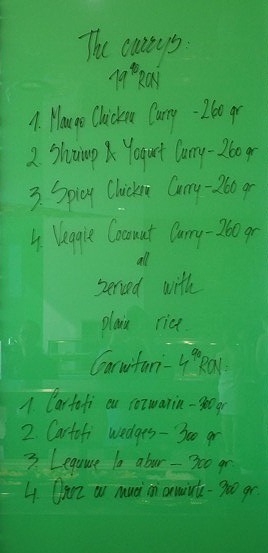 The currys:
19 90 RON
1. Mango Chicken Curry - 260 gr
2. Shrimp & Yogurt Curry - 260 gr
3. Spicy Chicken Curry - 260 gr
4. Veggie Coconut Curry - 260 gr
all
served with
plain rice.
Garnituri - 4 90 RON:
1. Cartofi cu rozmarin - 300 gr
2. Cartofi wedges - 300 gr
3. Legume la abur - 300 gr
4. Orez cu nuci si seminte - 300 gr.